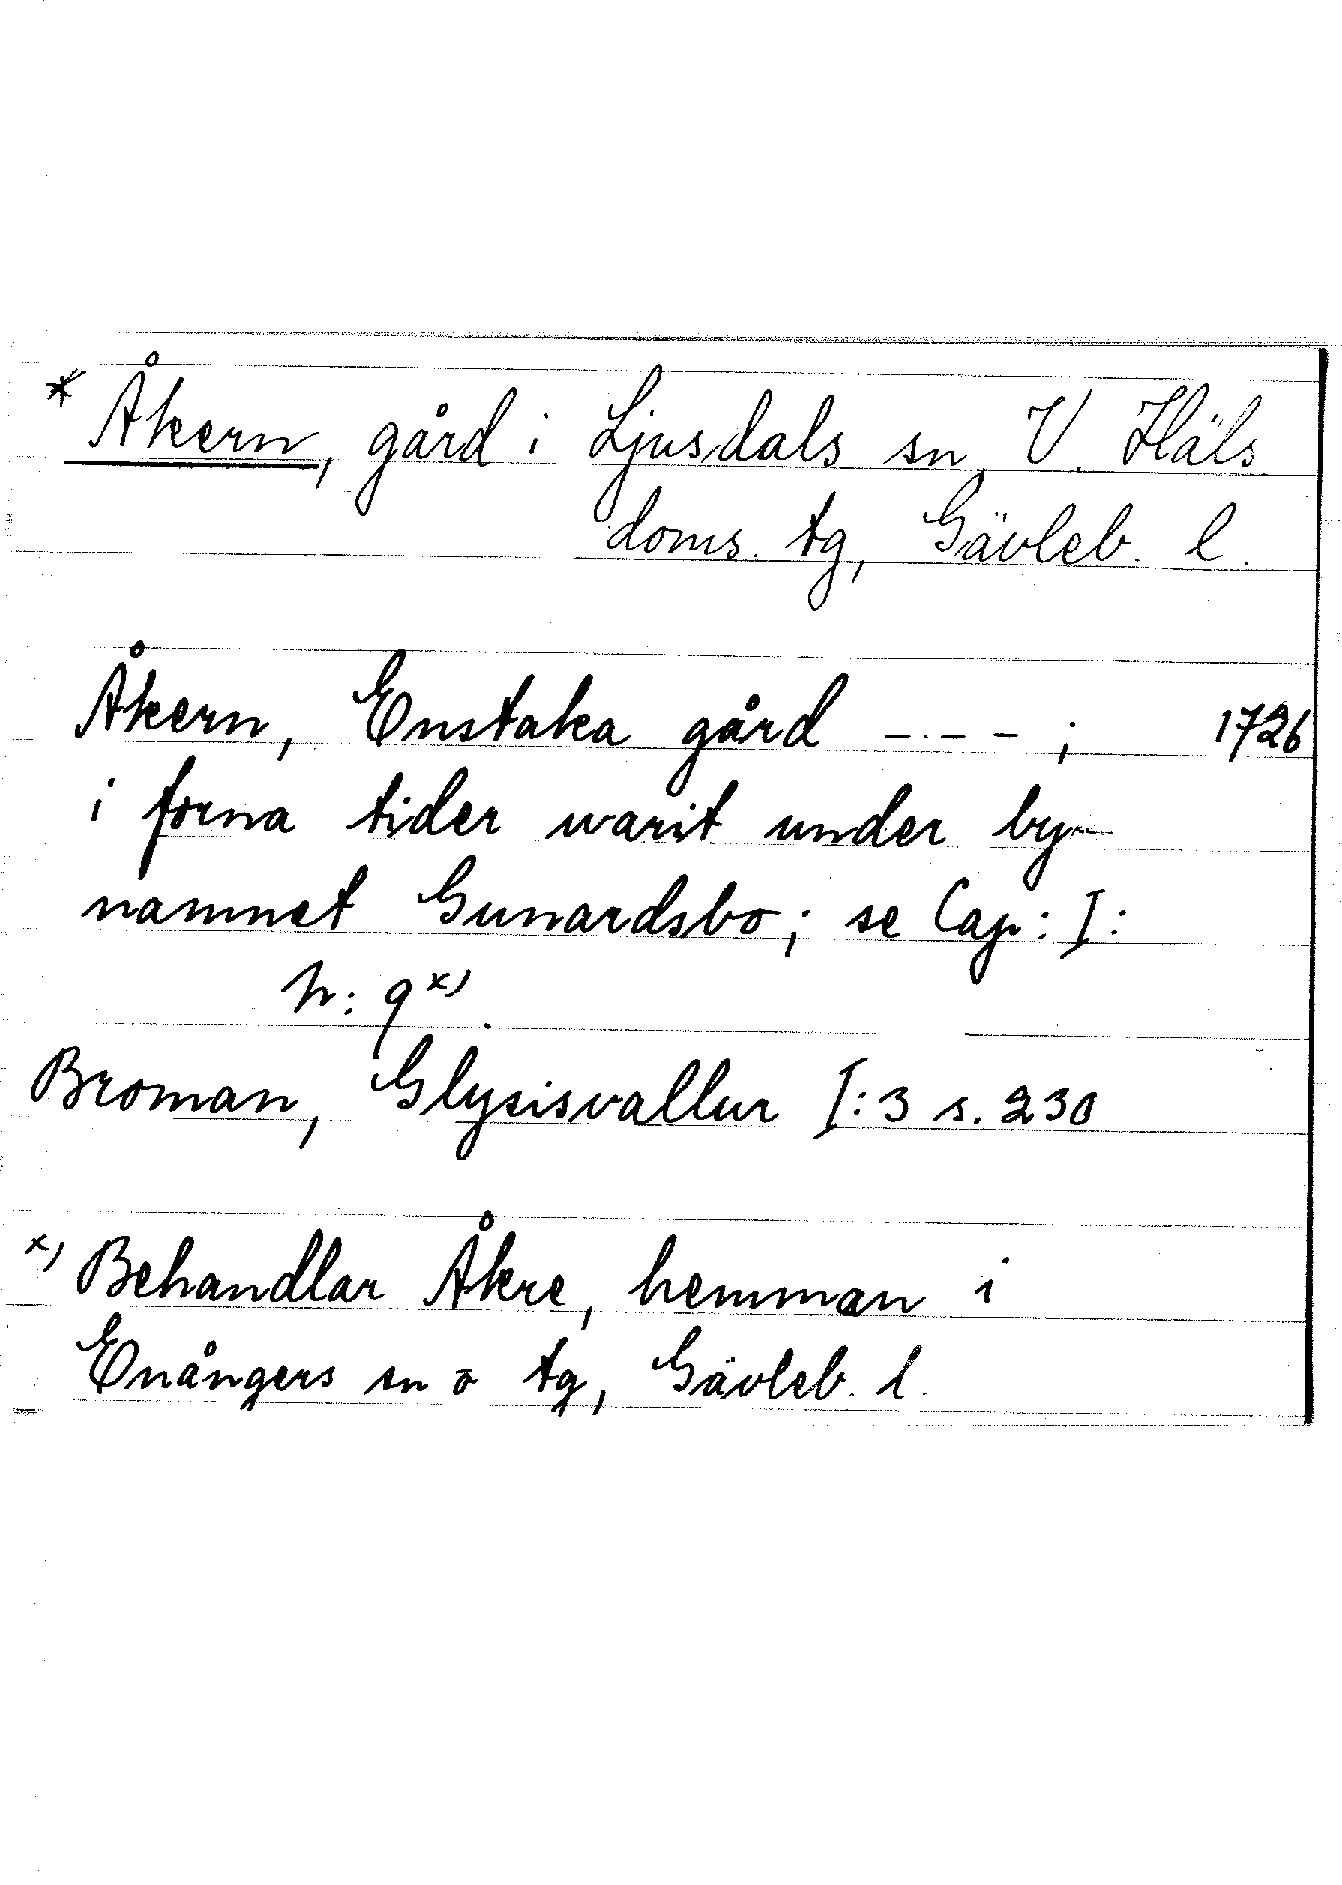 * Åkern, gård i Ljusdals sn, V. Häls
doms. tg, Gävleb. l.
Åkern, Enstaka gård – · – – ; 1726
i forna tider warit under by-
namnet Gunardsbo; se Cap: I:
h: q x).
Broman, Glysisvallur I:3 s. 230
x) Behandlar Åkre, hemman i
Enångers sn o tg, Gävleb. l.